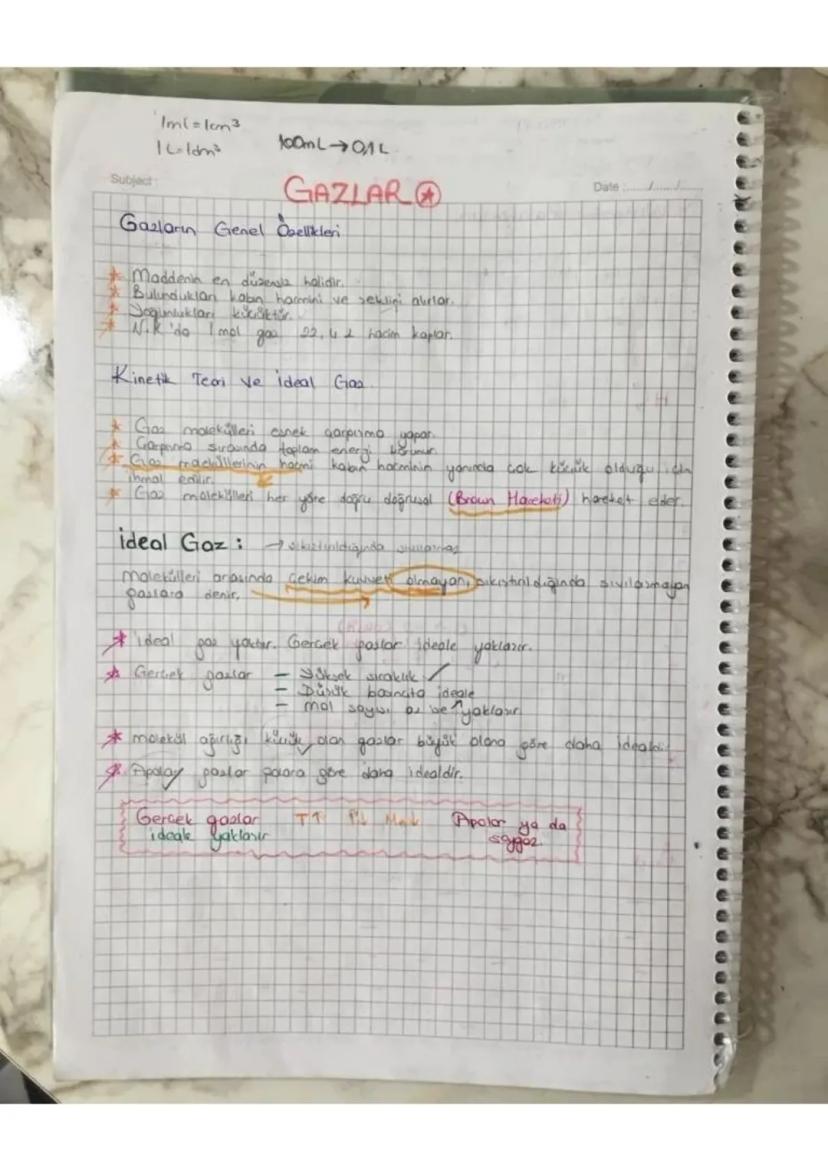 1mL=1cm³
1L=1dm³ 100mL→0,1L
Subject:
Date:....../....../......
GAZLAR
Gazların Genel Özellikleri
* Maddenin en düzensiz halidir.
* Bulundukları kabın hacmini ve şeklini alırlar.
* Yoğunlukları küçüktür.
* N.K'da 1 mol gaz 22,4 L hacim kaplar.
Kinetik Teori ve İdeal Gaz
* Gaz molekülleri esnek çarpışma yapar.
* Çarpışma sırasında toplam enerji korunur.
* Gaz moleküllerinin hacmi kabın hacminin yanında çok küçük olduğu için
ihmal edilir.
* Gaz molekülleri her yöne doğru doğrusal (Brown Hareketi) hareket eder.
İdeal Gaz : → sıkıştırıldığında
molekülleri arasında çekim kuvveti olmayan, sıkıştırıldığında sıvılaşmayan
gazlara denir.
* İdeal gaz yoktur. Gerçek gazlar ideale yaklaşır.
* Gerçek gazlar – Yüksek sıcaklık
– Düşük basınçta ideale
– mol sayısı az ise yaklaşır
* molekül ağırlığı küçük olan gazlar büyük olana göre daha idealdir
* Apolar gazlar polara göre daha idealdir.
Gerçek gazlar T↑ P↓ Ma↓ Apolar ya da
ideale yaklaşır soygaz.